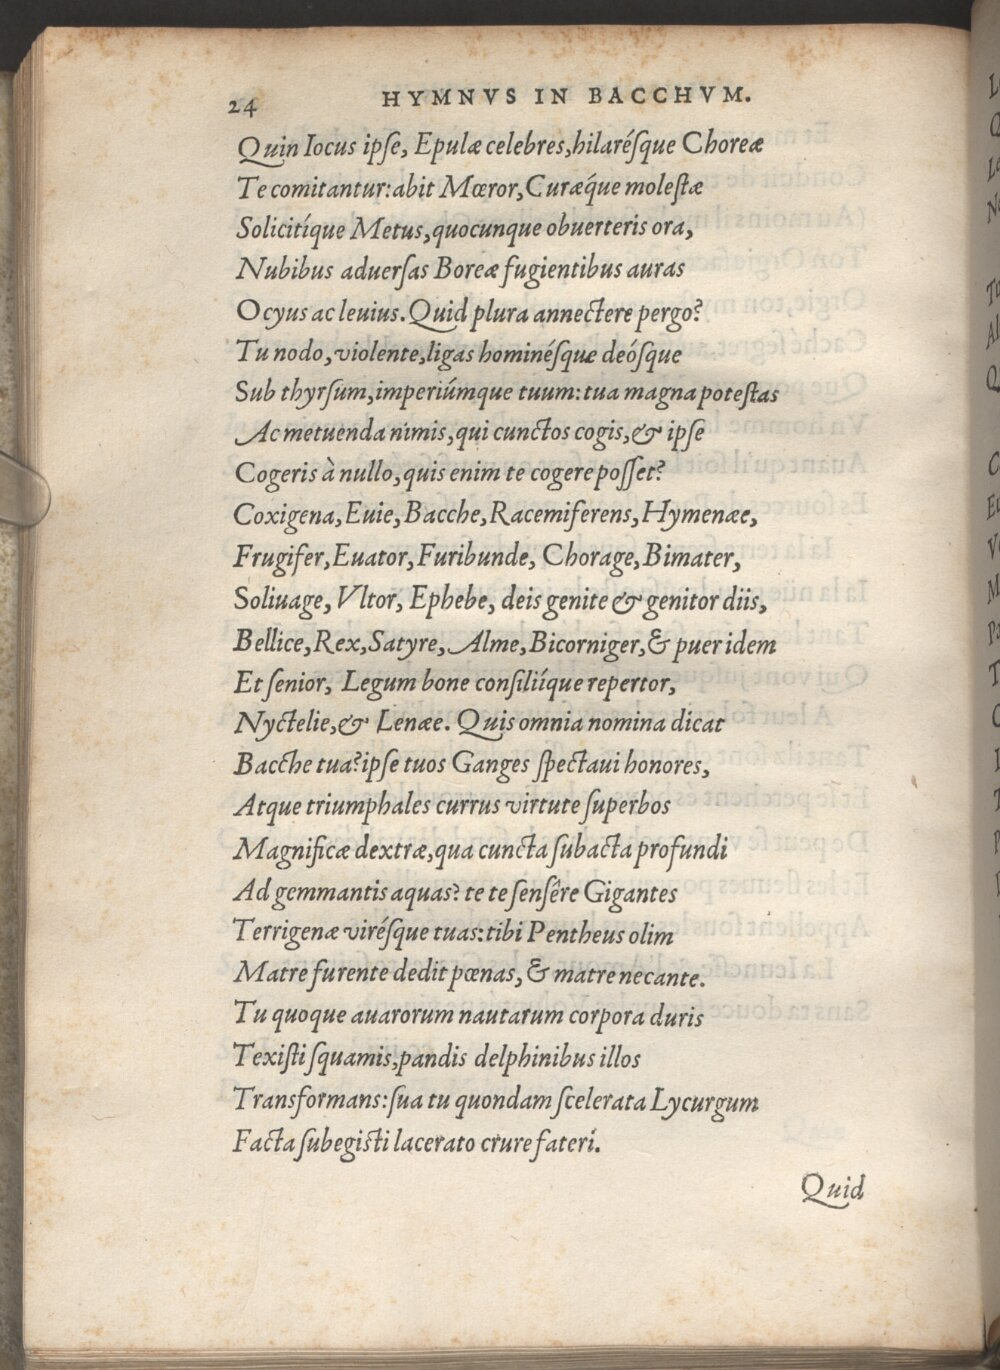 24 HYMNVS IN BACCHVM.
Quin Iocus ipſe, Epulæ celebres, hilaréſque Choreæ
Te comitantur: abit Mœror, Curæque moleſtæ
Solicitíque Metus, quocunque obuerteris ora,
Nubibus aduerſas Boreæ fugientibus auras
Ocyus ac leuius. Quid plura annectere pergo?
Tu nodo, violente, ligas hominéſque deóſque
Sub thyrſum, imperiúmque tuum: tua magna poteſtas
Ac metuenda nimis, qui cunctos cogis, & ipſe
Cogeris à nullo, quis enim te cogere poſſet?
Coxigena, Euie, Bacche, Racemiferens, Hymenæe,
Frugifer, Euator, Furibunde, Chorage, Bimater,
Soliuage, Vltor, Ephebe, deis genite & genitor diis,
Bellice, Rex, Satyre, Alme, Bicorniger, & puer idem
Et ſenior, Legum bone conſilíique repertor,
Nyctelie, & Lenæe. Quis omnia nomina dicat
Bacche tua? ipſe tuos Ganges ſpectaui honores,
Atque triumphales currus virtute ſuperbos
Magnificæ dextræ, qua cuncta ſubacta profundi
Ad gemmantis aquas? te te ſenſêre Gigantes
Terrigenæ viréſque tuas: tibi Pentheus olim
Matre furente dedit pœnas, & matre necante.
Tu quoque auarorum nautarum corpora duris
Texiſti ſquamis, pandis delphinibus illos
Transformans: ſua tu quondam ſcelerata Lycurgum
Facta ſubegiſti lacerato crure fateri.
Quid